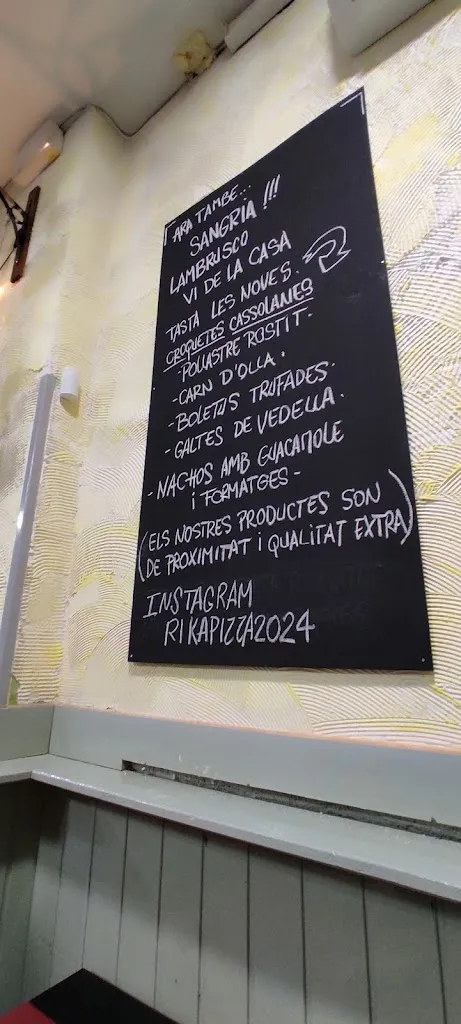 ARA TAMBE...
SANGRIA !!!
LAMBRUSCO
VI DE LA CASA
TASTA LES NOVES.
CROQUETES CASSOLANES
- POLLASTRE ROSTIT.
- CARN D'OLLA.
- BOLETUS TRUFADES.
- GALTES DE VEDELLA.
- NACHOS AMB GUACAMOLE
i FORMATGES -
(ELS NOSTRES PRODUCTES SON
DE PROXIMITAT i QUALITAT EXTRA)
INSTAGRAM
RIKAPIZZA2024